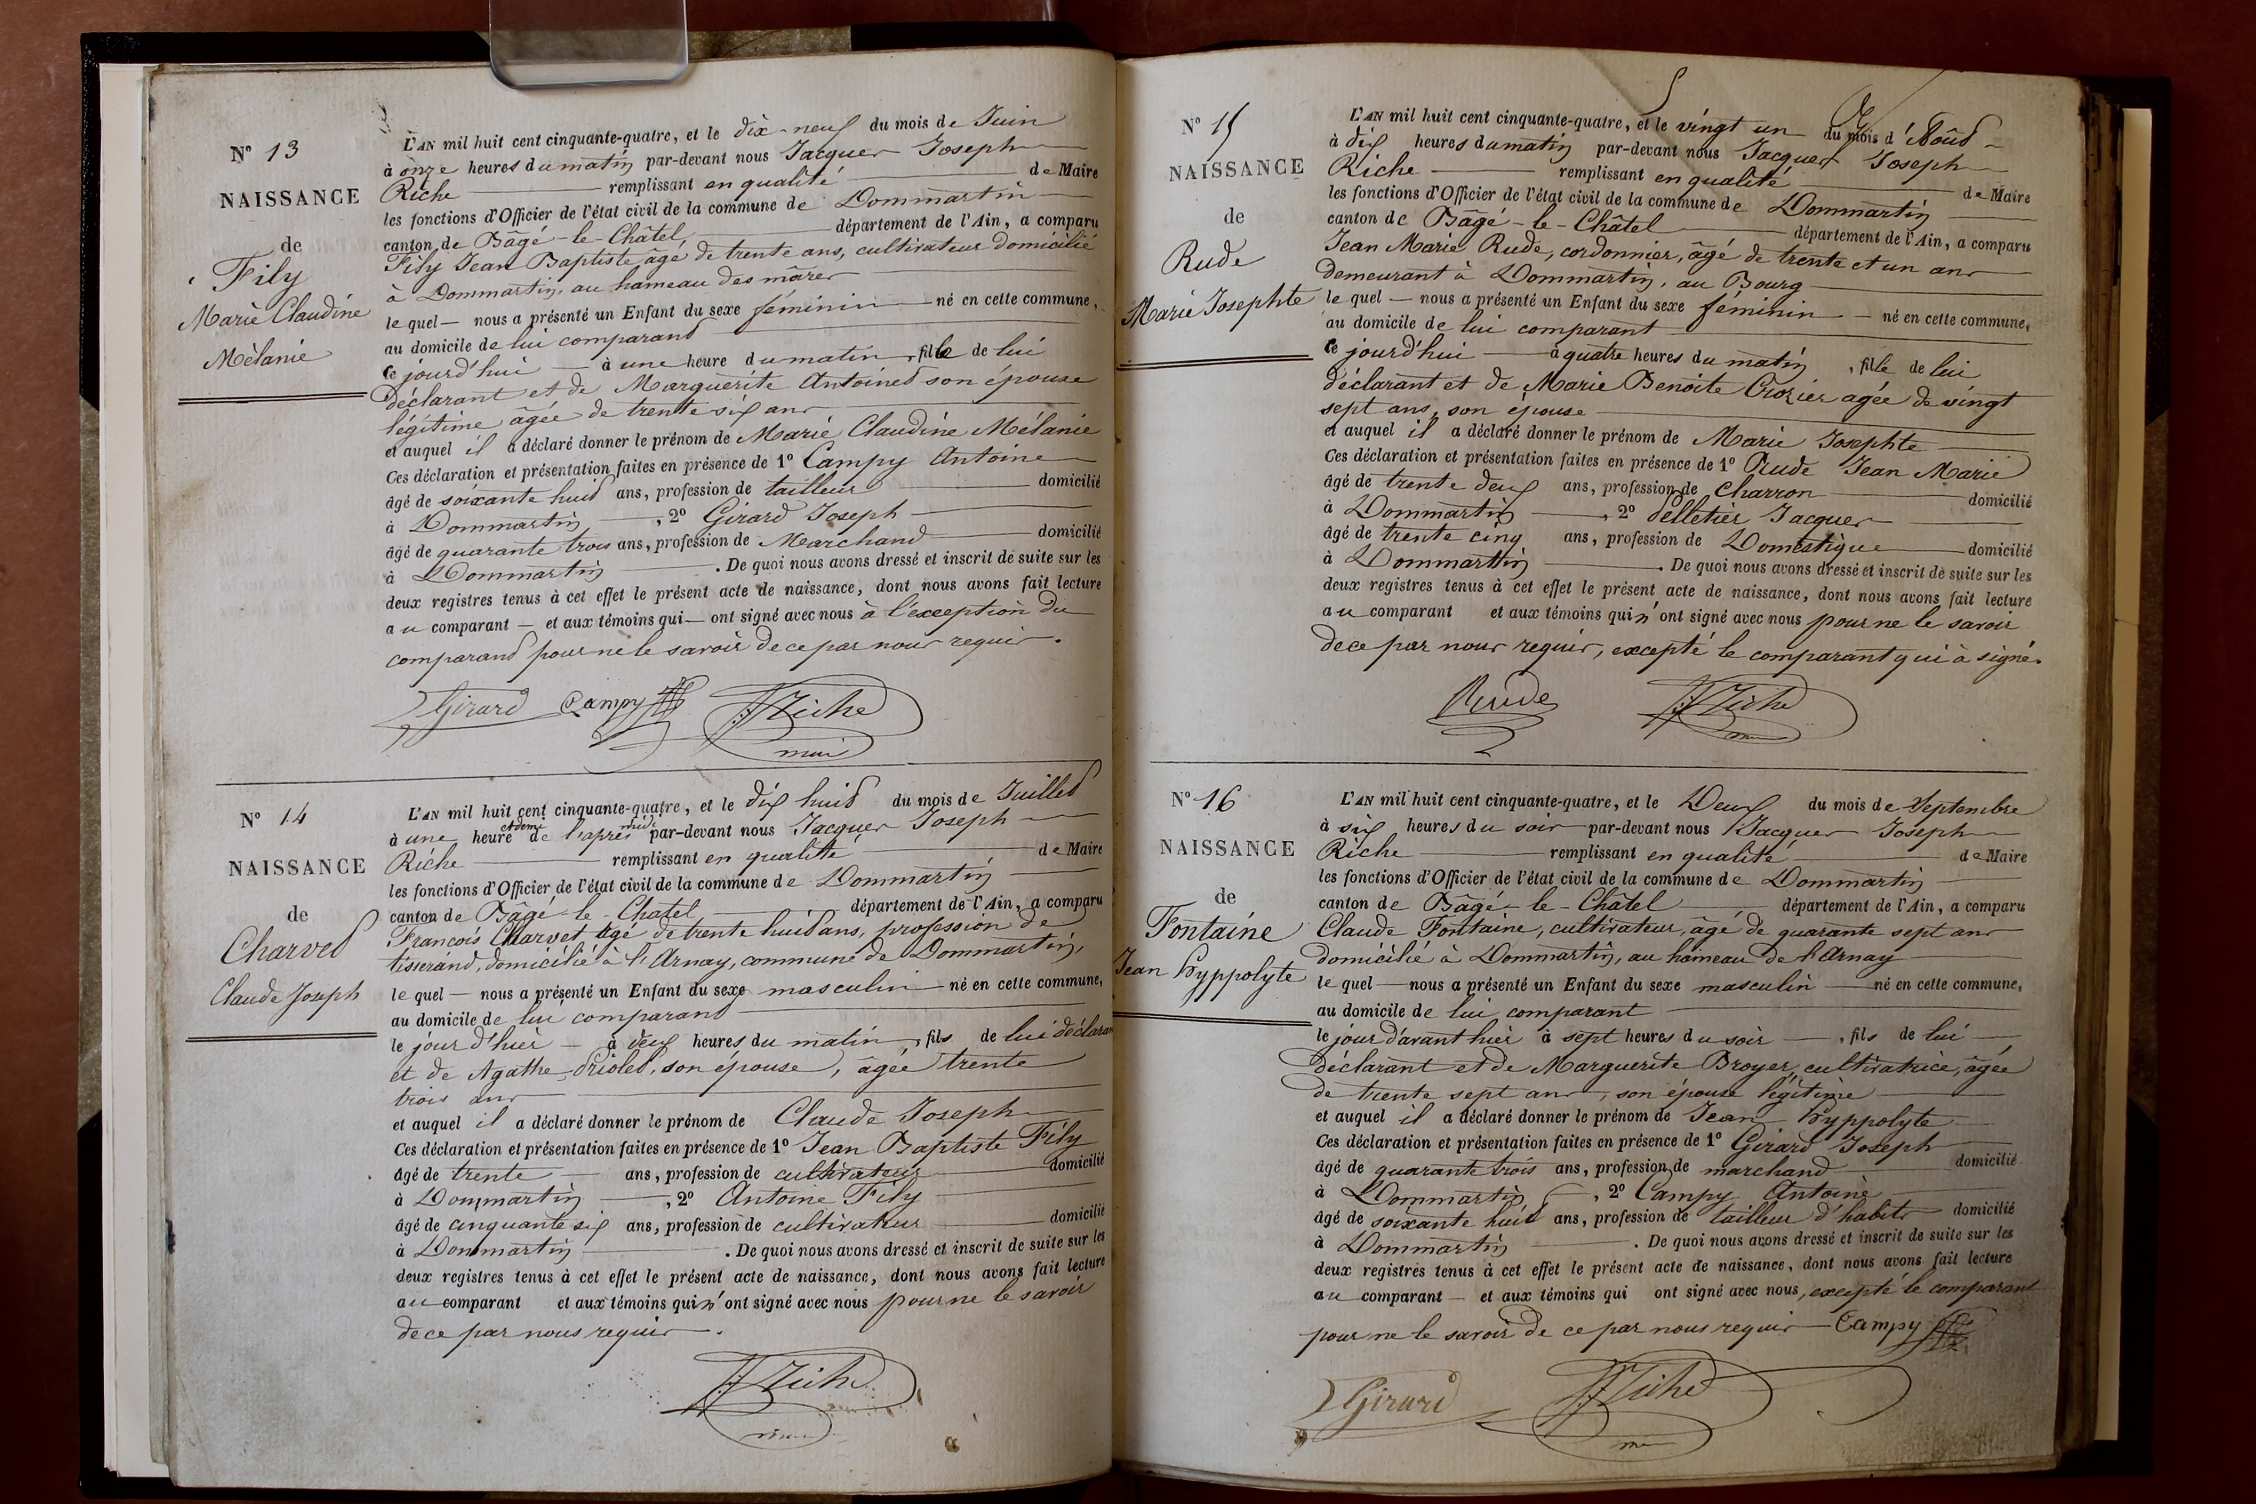 N° 13
NAISSANCE
de
Fily
Marie Claudine
Mélanie
L'AN mil huit cent cinquante-quatre, et le dix-neuf du mois de Juin
à onze heures du matin par-devant nous Jacques Joseph
Riche remplissant en qualité de Maire
les fonctions d'Officier de l'état civil de la commune de Dommartin
canton de Bâgé-le-Châtel département de l'Ain, a comparu
Fily Jean Baptiste agé de trente ans, cultivateur domicilié
à Dommartin, au hameau des mares
le quel nous a présenté un Enfant du sexe féminin né en cette commune,
au domicile de lui comparant
ce jourd'hui à une heure du matin, fille de lui
déclarant et de Marguerite Antoinet son épouse
légitime âgée de trente six ans
et auquel il a déclaré donner le prénom de Marie Claudine Mélanie
Ces déclaration et présentation faites en présence de 1° Campy Antoine
âgé de soixante huit ans, profession de tailleur domicilié
à Dommartin, 2° Girard Joseph
âgé de quarante trois ans, profession de Marchand domicilié
à Dommartin. De quoi nous avons dressé et inscrit de suite sur les
deux registres tenus à cet effet le présent acte de naissance, dont nous avons fait lecture
au comparant et aux témoins qui ont signé avec nous à l'exception du
comparant pour ne le savoir de ce par nous requis.
Girard Campy Riche
maire
N° 14
NAISSANCE
de
Charvet
Claude Joseph
L'AN mil huit cent cinquante-quatre, et le dix huit du mois de Juillet
à une heure et demie de l'après midi par-devant nous Jacques Joseph
Riche remplissant en qualité de Maire
les fonctions d'Officier de l'état civil de la commune de Dommartin
canton de Bâgé-le-Chatel département de l'Ain, a comparu
François Charvet agé de trente huit ans, profession de
tisserand, domicilié à l'Arnay, commune de Dommartin,
le quel nous a présenté un Enfant du sexe masculin né en cette commune,
au domicile de lui comparant
le jour d'hier à deux heures du matin, fils de lui déclarant
et de Agathe Driolet, son épouse, âgée trente
trois ans
et auquel il a déclaré donner le prénom de Claude Joseph
Ces déclaration et présentation faites en présence de 1° Jean Baptiste Fily
âgé de trente ans, profession de cultivateur domicilié
à Dommartin, 2° Antoine Fily
âgé de cinquante six ans, profession de cultivateur domicilié
à Dommartin. De quoi nous avons dressé et inscrit de suite sur les
deux registres tenus à cet effet le présent acte de naissance, dont nous avons fait lecture
au comparant et aux témoins qui n'ont signé avec nous pour ne le savoir
de ce par nous requis.
Riche
N° 15
NAISSANCE
de
Rude
Marie Josephte
L'AN mil huit cent cinquante-quatre, et le vingt un du mois d'Août
à dix heures du matin par-devant nous Jacques Joseph
Riche remplissant en qualité de Maire
les fonctions d'Officier de l'état civil de la commune de Dommartin
canton de Bâgé-le-Châtel département de l'Ain, a comparu
Jean Marie Rude, cordonnier, âgé de trente et un ans
demeurant à Dommartin, au Bourg
le quel nous a présenté un Enfant du sexe féminin né en cette commune,
au domicile de lui comparant
ce jourd'hui à quatre heures du matin, fille de lui
déclarant et de Marie Benoite Crozier agée de vingt
sept ans, son épouse
et auquel il a déclaré donner le prénom de Marie Josephte
Ces déclaration et présentation faites en présence de 1° Rude Jean Marie
âgé de trente deux ans, profession de charron domicilié
à Dommartin, 2° Pelletier Jacques
âgé de trente cinq ans, profession de Domestique domicilié
à Dommartin. De quoi nous avons dressé et inscrit de suite sur les
deux registres tenus à cet effet le présent acte de naissance, dont nous avons fait lecture
au comparant et aux témoins qui n'ont signé avec nous pour ne le savoir
de ce par nous requis, excepté le comparant qui à signé.
Rude Riche
N° 16
NAISSANCE
de
Fontaine
Jean hyppolyte
L'AN mil huit cent cinquante-quatre, et le Deux du mois de Septembre
à six heures du soir par-devant nous Jacques Joseph
Riche remplissant en qualité de Maire
les fonctions d'Officier de l'état civil de la commune de Dommartin
canton de Bâgé-le-Châtel département de l'Ain, a comparu
Claude Fontaine, cultivateur, âgé de quarante sept ans
domicilié à Dommartin, au hameau de l'Arnay
le quel nous a présenté un Enfant du sexe masculin né en cette commune,
au domicile de lui comparant
le jour d'avant hier à sept heures du soir, fils de lui
déclarant et de Marguerite Broyer, cultivatrice, âgée
de trente sept ans, son épouse légitime
et auquel il a déclaré donner le prénom de Jean hyppolyte
Ces déclaration et présentation faites en présence de 1° Girard Joseph
âgé de quarante trois ans, profession de marchand domicilié
à Dommartin, 2° Campy Antoine
âgé de soixante huit ans, profession de tailleur d'habits domicilié
à Dommartin. De quoi nous avons dressé et inscrit de suite sur les
deux registres tenus à cet effet le présent acte de naissance, dont nous avons fait lecture
au comparant et aux témoins qui ont signé avec nous, excepté le comparant
pour ne le savoir de ce par nous requis Campy
Girard Riche